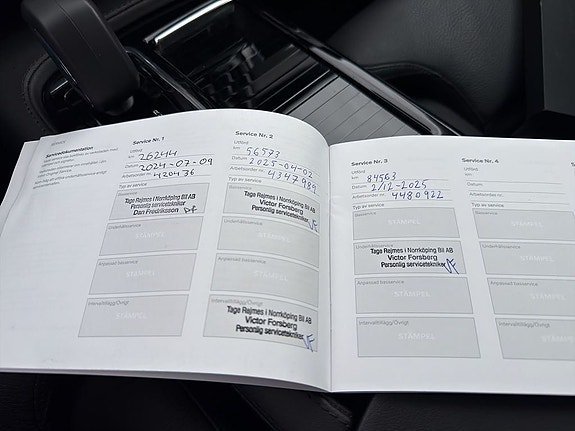 SERVICE
Servicedokumentation
Service Nr. 1
Utförd
km: 26244
Datum 2024-07-09
Arbetsorder nr. 420436
Typ av service
Tage Rejmes i Norrköping Bil AB
Personlig servicetekniker
Dan Fredriksson DF
Underhållsservice
STÄMPEL
Anpassad basservice
STÄMPEL
Intervalltillägg/Övrigt
STÄMPEL
Service Nr. 2
Utförd
km: 56573
Datum 2025-04-02
Arbetsorder nr. 4347989
Typ av service
Basservice
Tage Rejmes i Norrköping Bil AB
Victor Forsberg
Personlig servicetekniker VF
Underhållsservice
STÄMPEL
Anpassad basservice
STÄMPEL
Tage Rejmes i Norrköping Bil AB
Victor Forsberg
Personlig servicetekniker VF
Service Nr. 3
Utförd
km: 84563
Datum 2/12-2025
Arbetsorder nr. 4480922
Typ av service
Basservice
STÄMPEL
Underhållsservice
Tage Rejmes i Norrköping Bil AB
Victor Forsberg
Personlig servicetekniker VF
Anpassad basservice
STÄMPEL
Intervalltillägg/Övrigt
STÄMPEL
Service Nr. 4
Utförd
km:
Datum
Arbetsorder nr.
Typ av service
Basservice
STÄMPEL
Underhållsservice
STÄMPEL
Anpassad basservice
STÄMPEL
Intervalltillägg/Övrigt
STÄMPEL